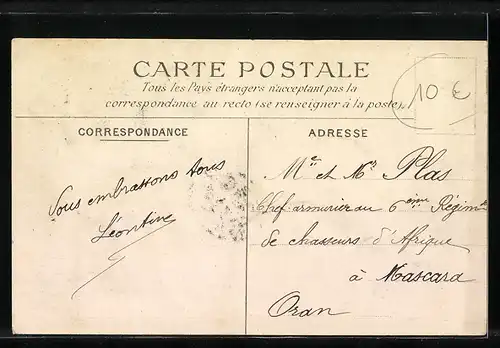 CARTE POSTALE
Tous les Pays étrangers n'acceptant pas la
correspondance au recto (se renseigner à la poste).
10 €
CORRESPONDANCE
Vous embrassons tous
Léontine
ADRESSE
Mr et Me Plas
Chef armurier au 6ème Régimt
de chasseurs d'Afrique
à Mascara
Oran